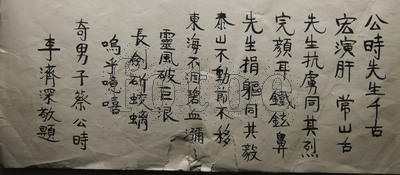 公時先生千古
宏演肝 常山舌
先生抗虜同其烈
完顏耳 鐵鉉鼻
先生捐軀同其毅
泰山不動前不移
東海不洄碧血瀰
靈風破巨浪
長劍斫蛟螭
嗚乎噫嘻
奇男子蔡公時
李濟深敬題